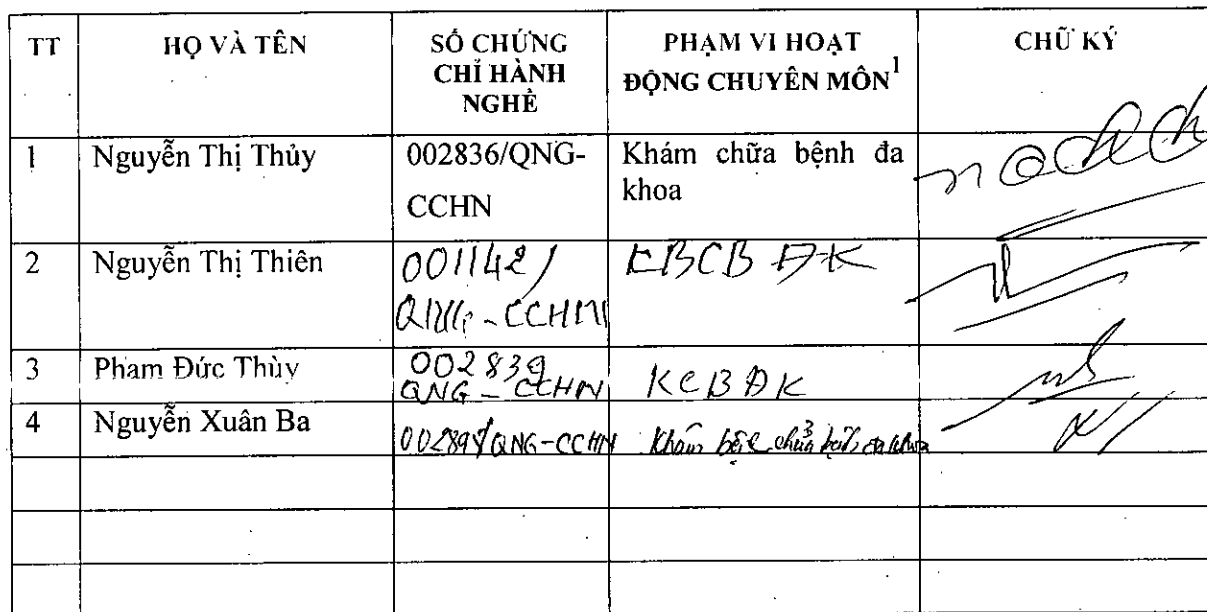 TT HỌ VÀ TÊN SỐ CHỨNG CHỈ HÀNH NGHỀ PHẠM VI HOẠT ĐỘNG CHUYÊN MÔN1 CHỮ KÝ
1 Nguyễn Thị Thủy 002836/QNG- Khám chữa bệnh đa
CCHN khoa
2 Nguyễn Thị Thiên 001142/ KBCB ĐK
QNG-CCHN
3 Phạm Đức Thùy 002839
QNG-CCHN KCBĐK
4 Nguyễn Xuân Ba
/QNG-CCHN Khám bệnh chữa bệnh đa khoa